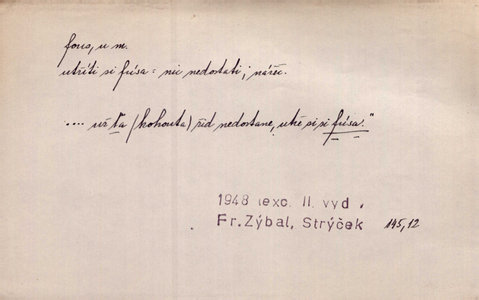 fous, u m.
utříti si fúsa: nic nedostati; nářeč.
.... už ťa (kohouta) žid nedostane, utře si si fúsa."
1948 (exc. II. vyd.
Fr.Zýbal, Strýček 145,12